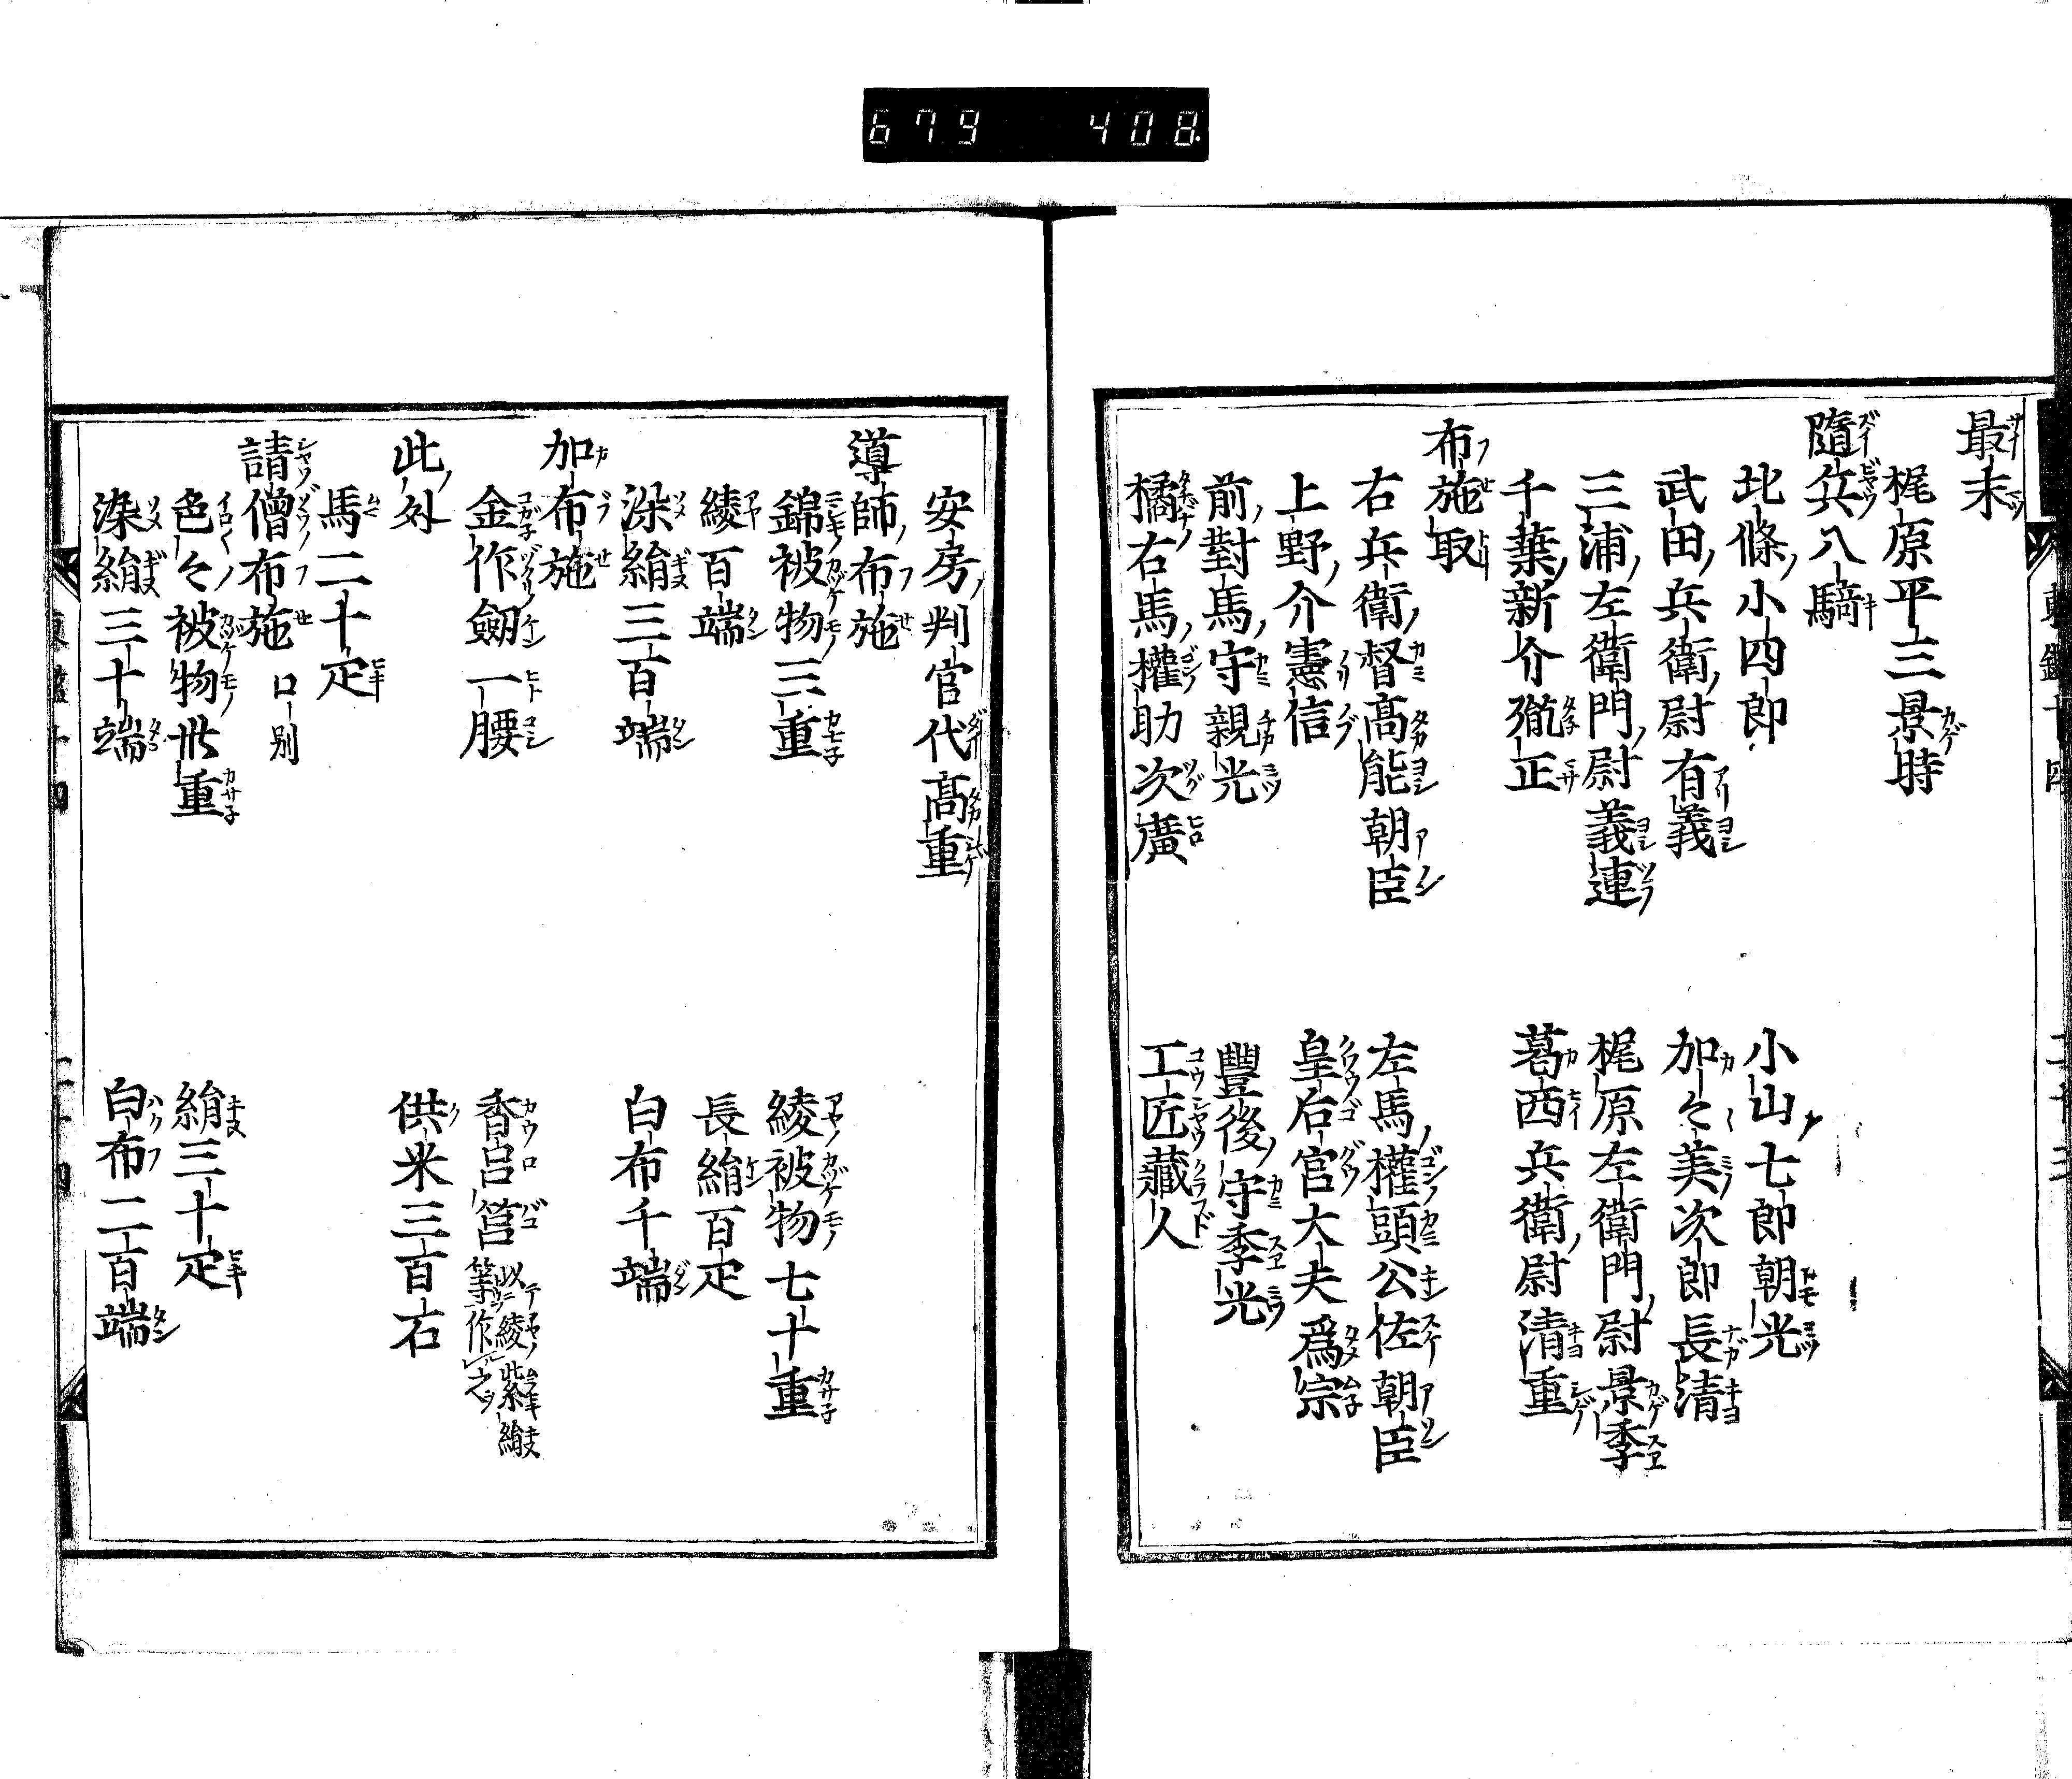 679 408
最末
梶原平三景時
隨兵八騎
北條小四郎 小山七郎朝光
武田兵衛尉有義 加々美次郎長清
三浦左衛門尉義連 梶原左衛門尉景季
千葉新介胤正 葛西兵衛尉清重
布施取
右兵衛督髙能朝臣 左馬權頭公佐朝臣
上野介憲信 皇后宮大夫爲宗
前對馬守親光 豐後守季光
橘右馬權助次廣 工匠藏人
安房判官代髙重
導師布施
錦被物三重 綾被物七十重
綾百端 長絹百疋
染絹三百端 白布千端
加布施
金作劔一腰 香呂筥 以綾紫絹等作之
此外
馬二十疋 供米三百石
請僧布施 口別
色々被物卅重 絹三十疋
染絹三十端 白布二百端